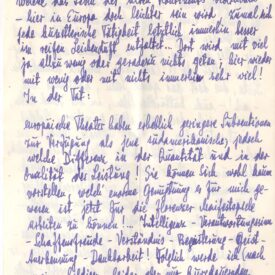 - hier in Europa doch leichter sein wird, zumal mit
jede künstlerische Tätigkeit letztlich immerhin besser
in reifen Zeichenstift entfaltet. Dort wird mit viel
ja alles wenig oder geradezu nichts getan; hier wieder
mit wenig oder mit nichts immerhin sehr viel!
In der Tat:
europäische Theater haben erheblich geringere Subventionen
zur Verfügung als jene südamerikanischen; jedoch
welche Differenz in der Quantität und in der
Qualität der Leistung! Sie können sich wohl kaum
vorstellen, welch' enorme Genugtuung es für mich ge-
wesen ist jetzt für die Florenzer Maifestspiele
arbeiten zu können!... Intelligenz - Verantwortungssinn
- Schaffensfreude - Verständnis - Begeisterung - Geist -
Anerkennung - Dankbarkeit! Folglich werde ich nach